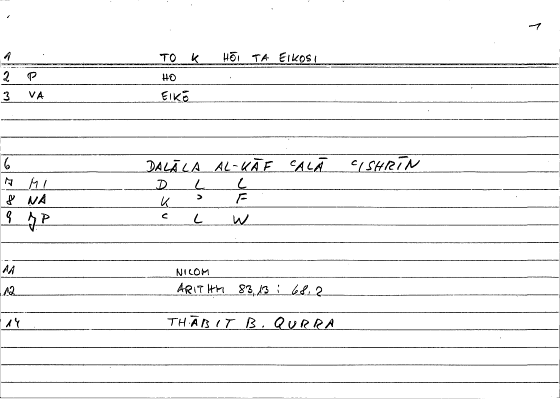 1
1 TO K HŌI TA EIKOSI
2 P HO
3 VA EIKŌ
6 DALĀLA AL-KĀF ʿALĀ ʿISHRĪN
7 MI D L L
8 NA K ʾ F
9 ʿ L W
11 NICOM
12 ARITHM 83,13 : 68,2
14 THĀBIT B. QURRA